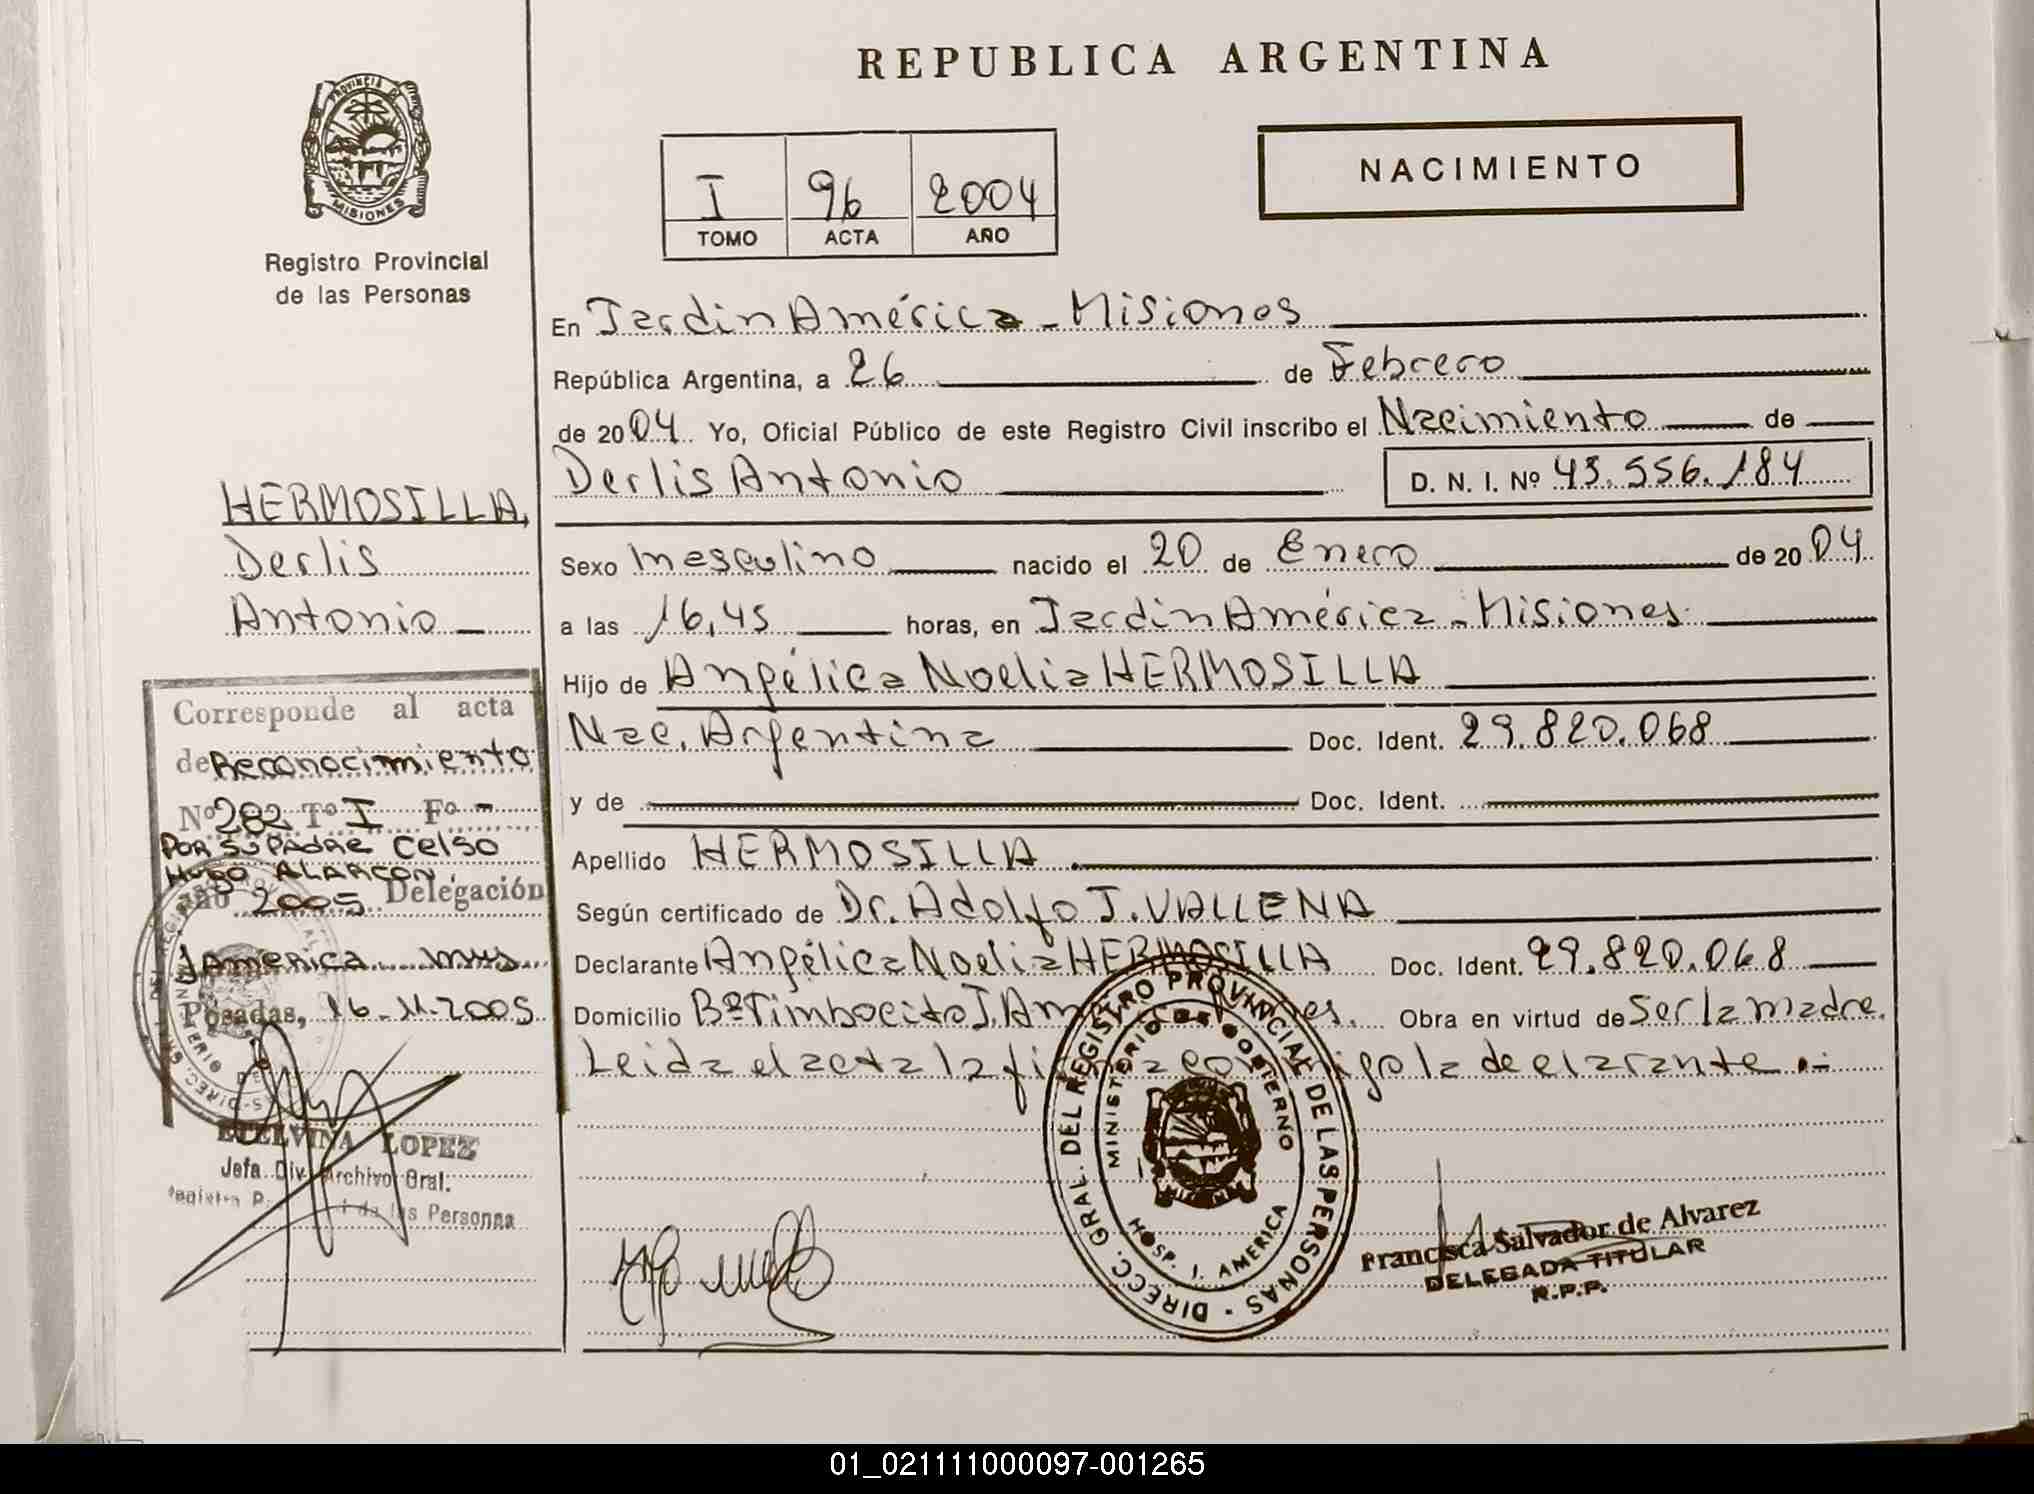 REPUBLICA ARGENTINA
PROVINCIA DE
MISIONES
Registro Provincial
de las Personas
NACIMIENTO
I 96 2004
TOMO ACTA AÑO
En Jardin América - Misiones
República Argentina, a 26 de Febrero
de 2004 Yo, Oficial Público de este Registro Civil inscribo el Nacimiento de
Derlis Antonio D. N. I. Nº 45.556.184
Sexo masculino nacido el 20 de Enero de 2004
a las 16,45 horas, en Jardin América - Misiones
Hijo de Angélica Noelia HERMOSILLA
Nac. Argentina Doc. Ident. 29.820.068
y de Doc. Ident.
Apellido HERMOSILLA.
Según certificado de Dr. Adolfo J. VALLENA
Declarante Angélica Noelia HERMOSILLA Doc. Ident. 29.820.068
Domicilio Bº Timbocito J. Obra en virtud de ser la madre.
Leida el acta la conmigo la declarante.-
HERMOSILLA,
Derlis
Antonio
Corresponde al acta
de Reconocimiento
Nº 282 Tº I Fº -
POR SU PADRE Celso
HUGO ALARCON.
año 2005 Delegación
J America mns
Posadas, 16-11-2005
ETELVINA LOPEZ
Jefa Div. Archivo Gral.
Registro de las Personas
DIRECC. GRAL. DEL REGISTRO PROVINCIAL DE LAS PERSONAS
MINISTERIO DE GOBIERNO
HOSP. J. AMERICA
Francisca Salvador de Alvarez
DELEGADA TITULAR
R.P.P.
01_021111000097-001265